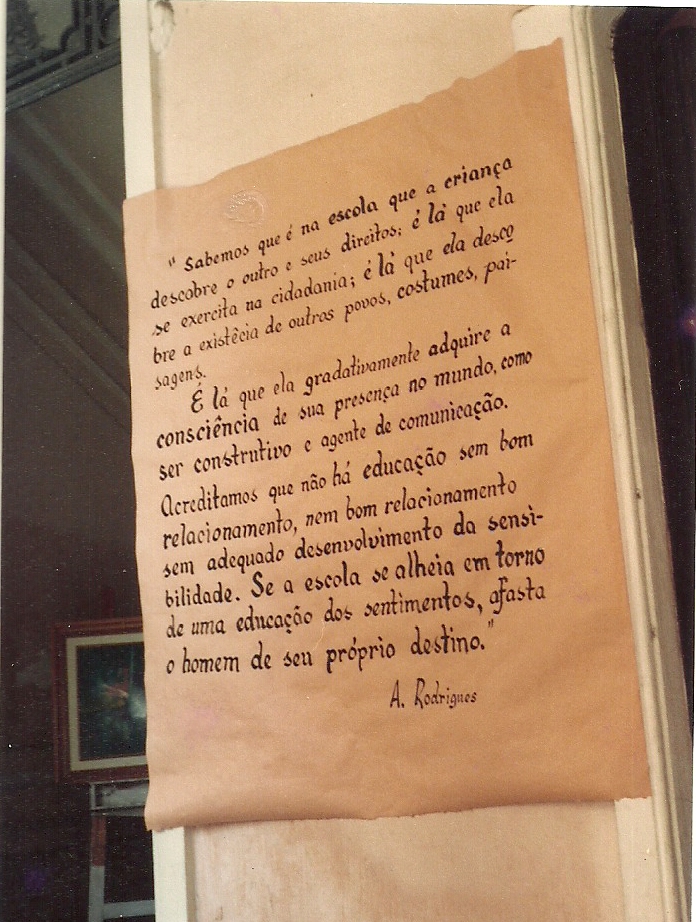 " Sabemos que é na escola que a criança
descobre o outro e seus direitos; é lá que ela
se exercita na cidadania; é lá que ela desco
bre a existêcia de outros povos, costumes, pai-
sagens.
É lá que ela gradativamente adquire a
consciência de sua presença no mundo, como
ser construtivo e agente de comunicação.
Acreditamos que não há educação sem bom
relacionamento, nem bom relacionamento
sem adequado desenvolvimento da sensi-
bilidade. Se a escola se alheia em torno
de uma educação dos sentimentos, afasta
o homem de seu próprio destino."
A. Rodrigues